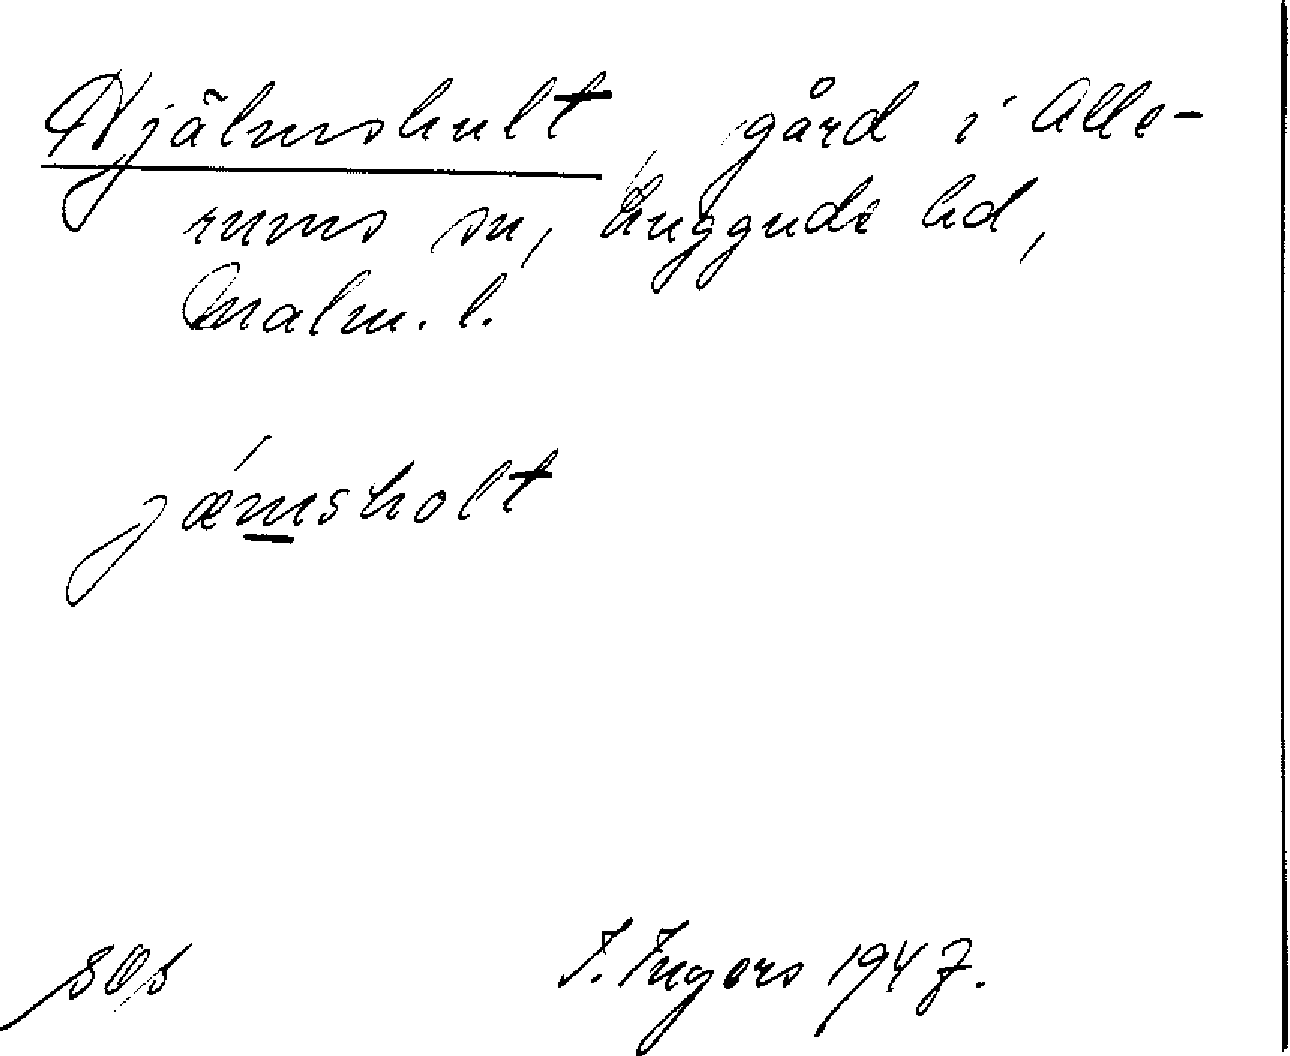 Hjälmshult, gård i Alle-
rums sn, Luggude hd,
Malm. l.
jǽmsholt
I. Ingers 1947.